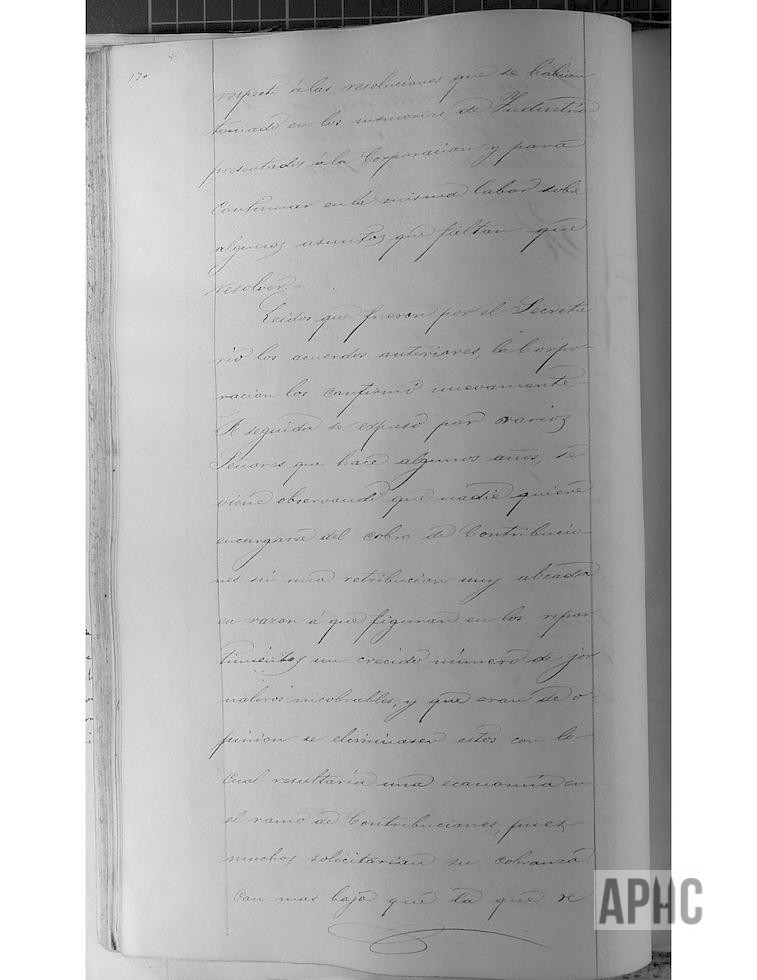 170
respecto á las resoluciones que se habian
tomado en los memorias de Yndustria
presentados á la Corporacion y para
continuar en la misma labor sobre
algunos asuntos que faltan que
resolver.=
Leidos que fueron por el Secreta
rio los acuerdos anteriores, la Corpo-
racion los confirmó nuevamente-
A seguida se expuso por varios
Señores que hace algunos años, se
viene observando que nadie quiere
encargarse del cobro de Contribucio-
nes sin una retribucion muy alzada
en razon á que figuran en los repar
timientos un crecido número de jor
naleros incobrables, y que eran de o-
pinion se eliminasen estos con lo-
cual resultaria una economia en
el ramo de Contribuciones, pues-
muchos solicitarian su cobranza
con mas baja que la que se
APHC